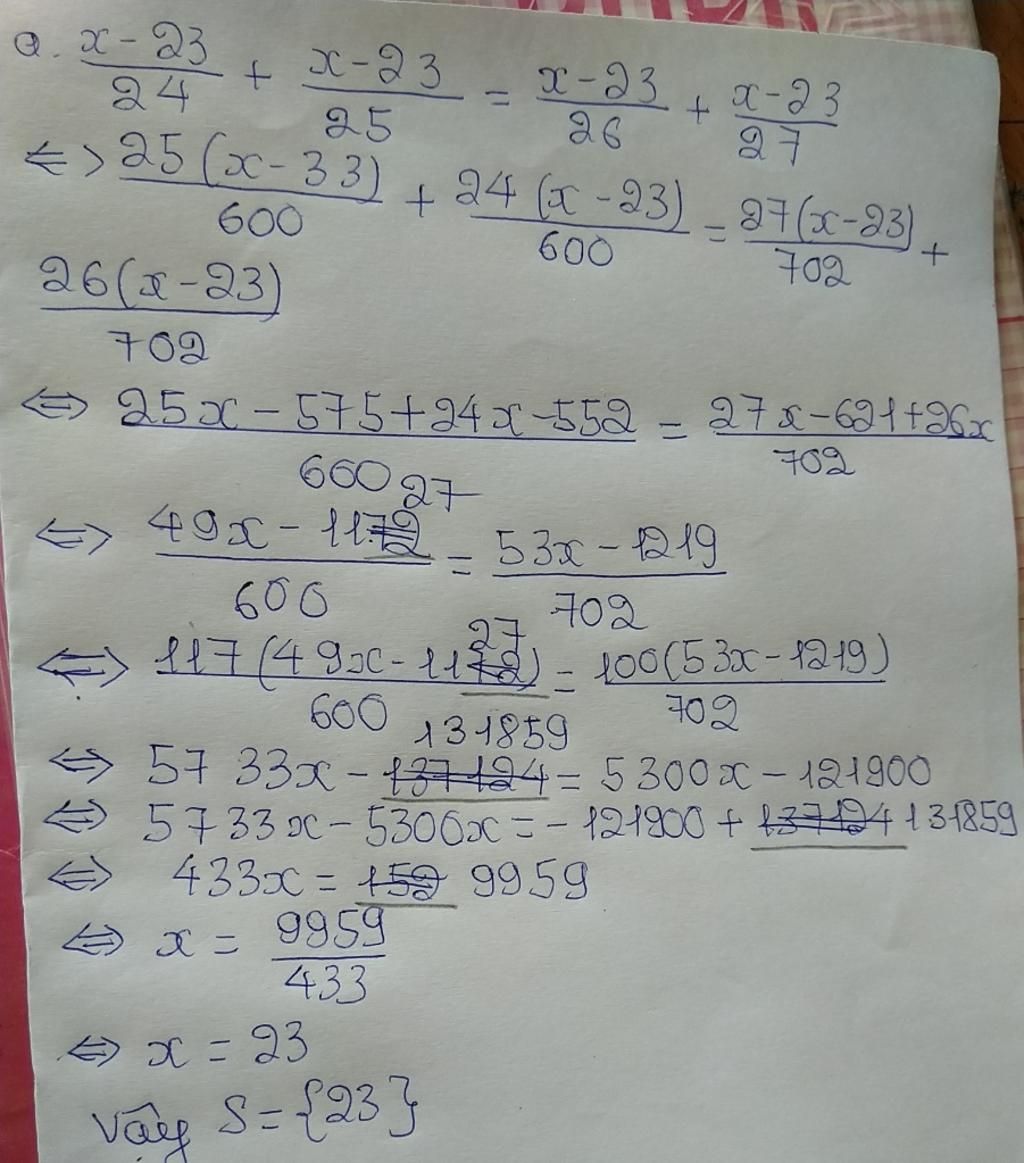 a. \frac{x-23}{24} + \frac{x-23}{25} = \frac{x-23}{26} + \frac{x-23}{27}
<=> \frac{25(x-33)}{600} + \frac{24(x-23)}{600} = \frac{27(x-23)}{702} +
\frac{26(x-23)}{702}
<=> \frac{25x-575+24x-552}{600} = \frac{27x-621+26x}{702}
<=> \frac{49x-11~~72~~ 27}{600} = \frac{53x-1219}{702}
<=> \frac{117(49x-11~~72~~ 27)}{600} = \frac{100(53x-1219)}{702}
<=> 5733x - ~~137124~~ 131859 = 5300x - 121900
<=> 5733x - 5300x = -121900 + ~~137124~~ 131859
<=> 433x = ~~152~~ 9959
<=> x = \frac{9959}{433}
<=> x = 23
Vậy S = {23}